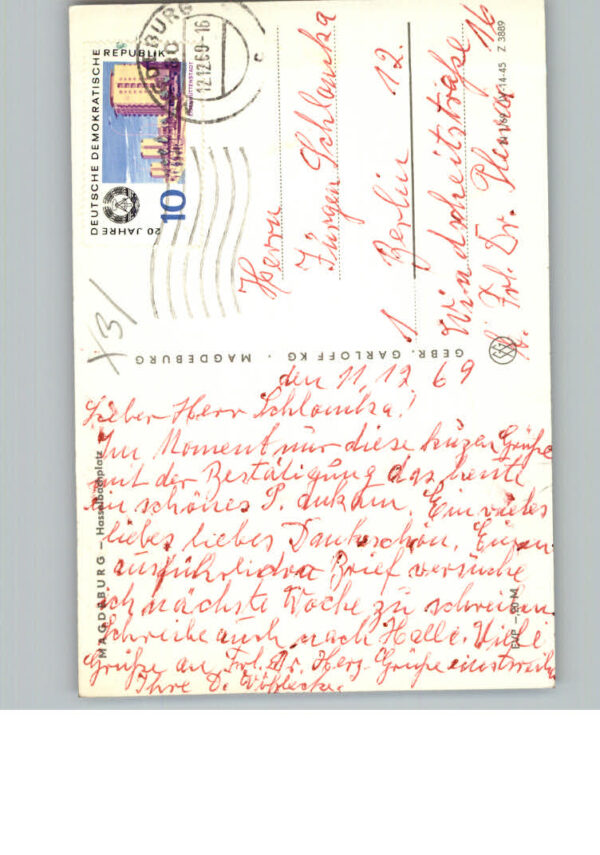 DEUTSCHE DEMOKRATISCHE
REPUBLIK
20 JAHRE
10
12.12.69-16
Herrn
Jürgen Schlomka
1 Berlin 12.
Windscheidstraße 16
b. Frl. Dr.
Z 3889
X3/
GEBR. GARLOFF KG · MAGDEBURG
MAGDEBURG – Hasselbachplatz
den 11.12.69
Lieber Herr Schlomka!
Im Moment nur diese kuzen Grüße
mit der Bestätigung das heute
ein schönes P. ankam. Ein vieles
liebes liebes Dankeschön. Einen
ausführlichen Brief versuche
ich nächste Woche zu schreiben.
Schreibe auch nach Halle. Viele
Grüße an Frl. Dr. Herz. Grüße einstweilen
Ihre D.